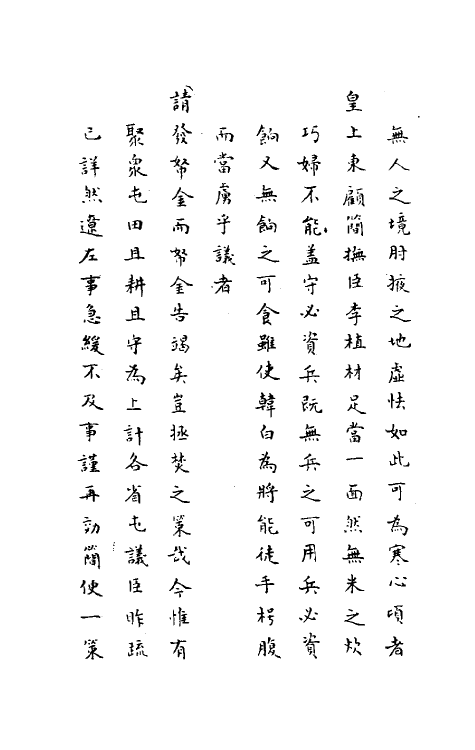 無人之境肘腋之地虛怯如此可為寒心頃者
皇上東顧簡撫臣李植材足當一面然無米之炊
巧婦不能盖守必資兵旣無兵之可用兵必資
餉又無餉之可食雖使韓白為將能徒手枵腹
而當虜乎議者
請發帑金而帑金告竭矣豈拯焚之策哉今惟有
聚衆屯田且耕且守為上計各省屯議臣昨疏
已詳然遼左事急緩不及事謹再効簡便一策